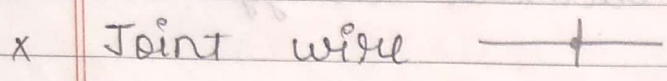 x Joint wire